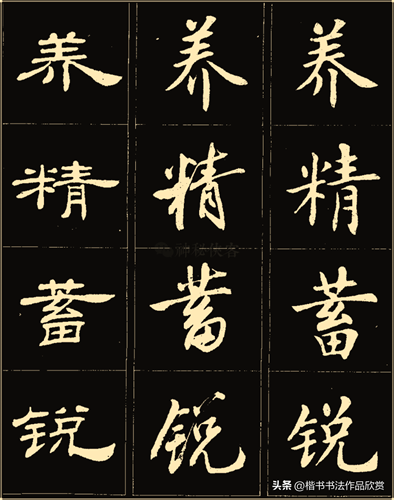 养 养 养
精 精 精
蓄 蓄 蓄
锐 锐 锐
头条 @楷书书法作品欣赏